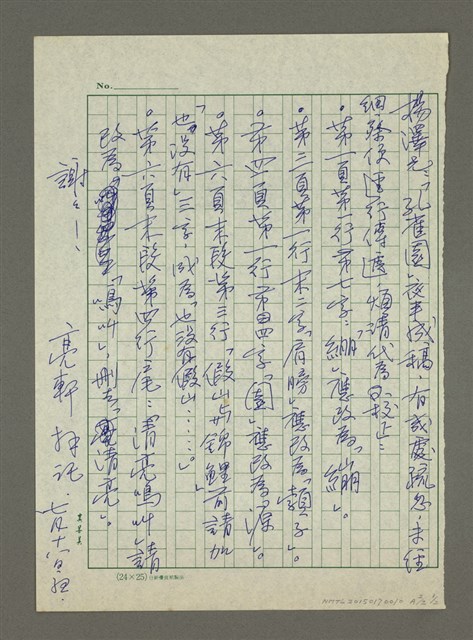 No.
楊澤兄：「孔雀園」夜半成稿，有或處疏忽，未經
細察便逕行傳遞，煩請代為校正：
。第一頁第一行第七字：「綳」應改為「繃」。
。第三頁第一行末二字「肩膀」應改為「頸子」。
。第四頁第一行第四字「園」應改為「源」。
。第六頁末段第三行「假山與錦鯉」前請加
「也沒有」三字，成為「也沒有假山……」。
。第六頁末段第四行尾：「清亮鳴叫」請
改為「鳴叫」，刪去「清亮」。
謝々！
亮軒 拜託．七月十
(24×25)
NMTL20150170010